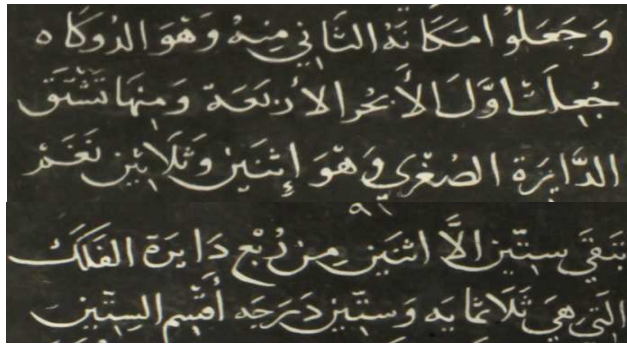 وَجَعَلُوا مَكَانَهُ الثَّانِي مِنهُ وَهُوَ الدُوكَاه
جُعِلَتْ اوَّلَ الأَبحُر الأَربَعَة وَمِنهَا تَشْتَق
الدَّايرَة الصُغْرَي وَهْوَ إِثنَين وَثَلَاثِين نَغَمْ
٩٦
تَبَقَي سِتّين الَّا اثنَين مِن رُبْع دَايرَة الفَلَك
التِي هِيَ ثَلَاثمَايَه وَسِتّين دَرَجَه أَقسِم السِتّين